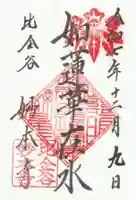 令和七年十二月九日
如蓮華在水
比企谷
妙本寺